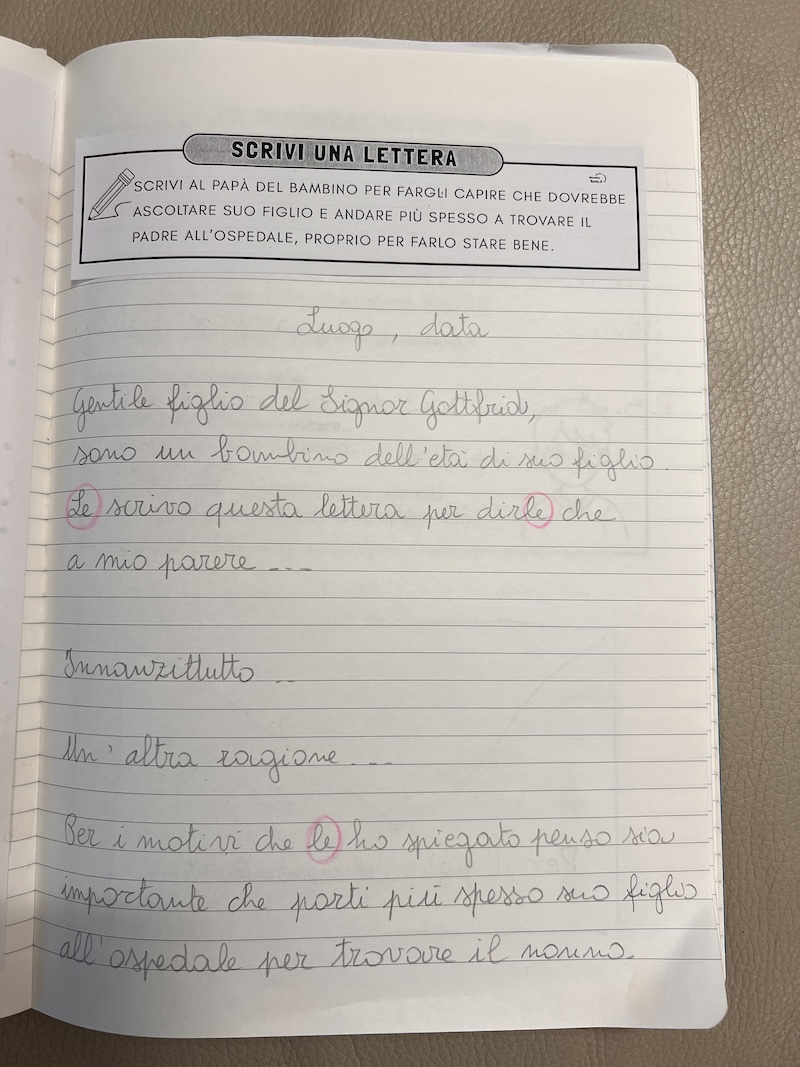 SCRIVI UNA LETTERA
SCRIVI AL PAPÀ DEL BAMBINO PER FARGLI CAPIRE CHE DOVREBBE
ASCOLTARE SUO FIGLIO E ANDARE PIÙ SPESSO A TROVARE IL
PADRE ALL'OSPEDALE, PROPRIO PER FARLO STARE BENE.
Luogo, data
Gentile figlio del Signor Gottfrid,
sono un bambino dell'età di suo figlio.
Le scrivo questa lettera per dirle che
a mio parere ---
Innanzittutto --
Un'altra ragione ---
Per i motivi che le ho spiegato penso sia
importante che porti più spesso suo figlio
all'ospedale per trovare il nonno.